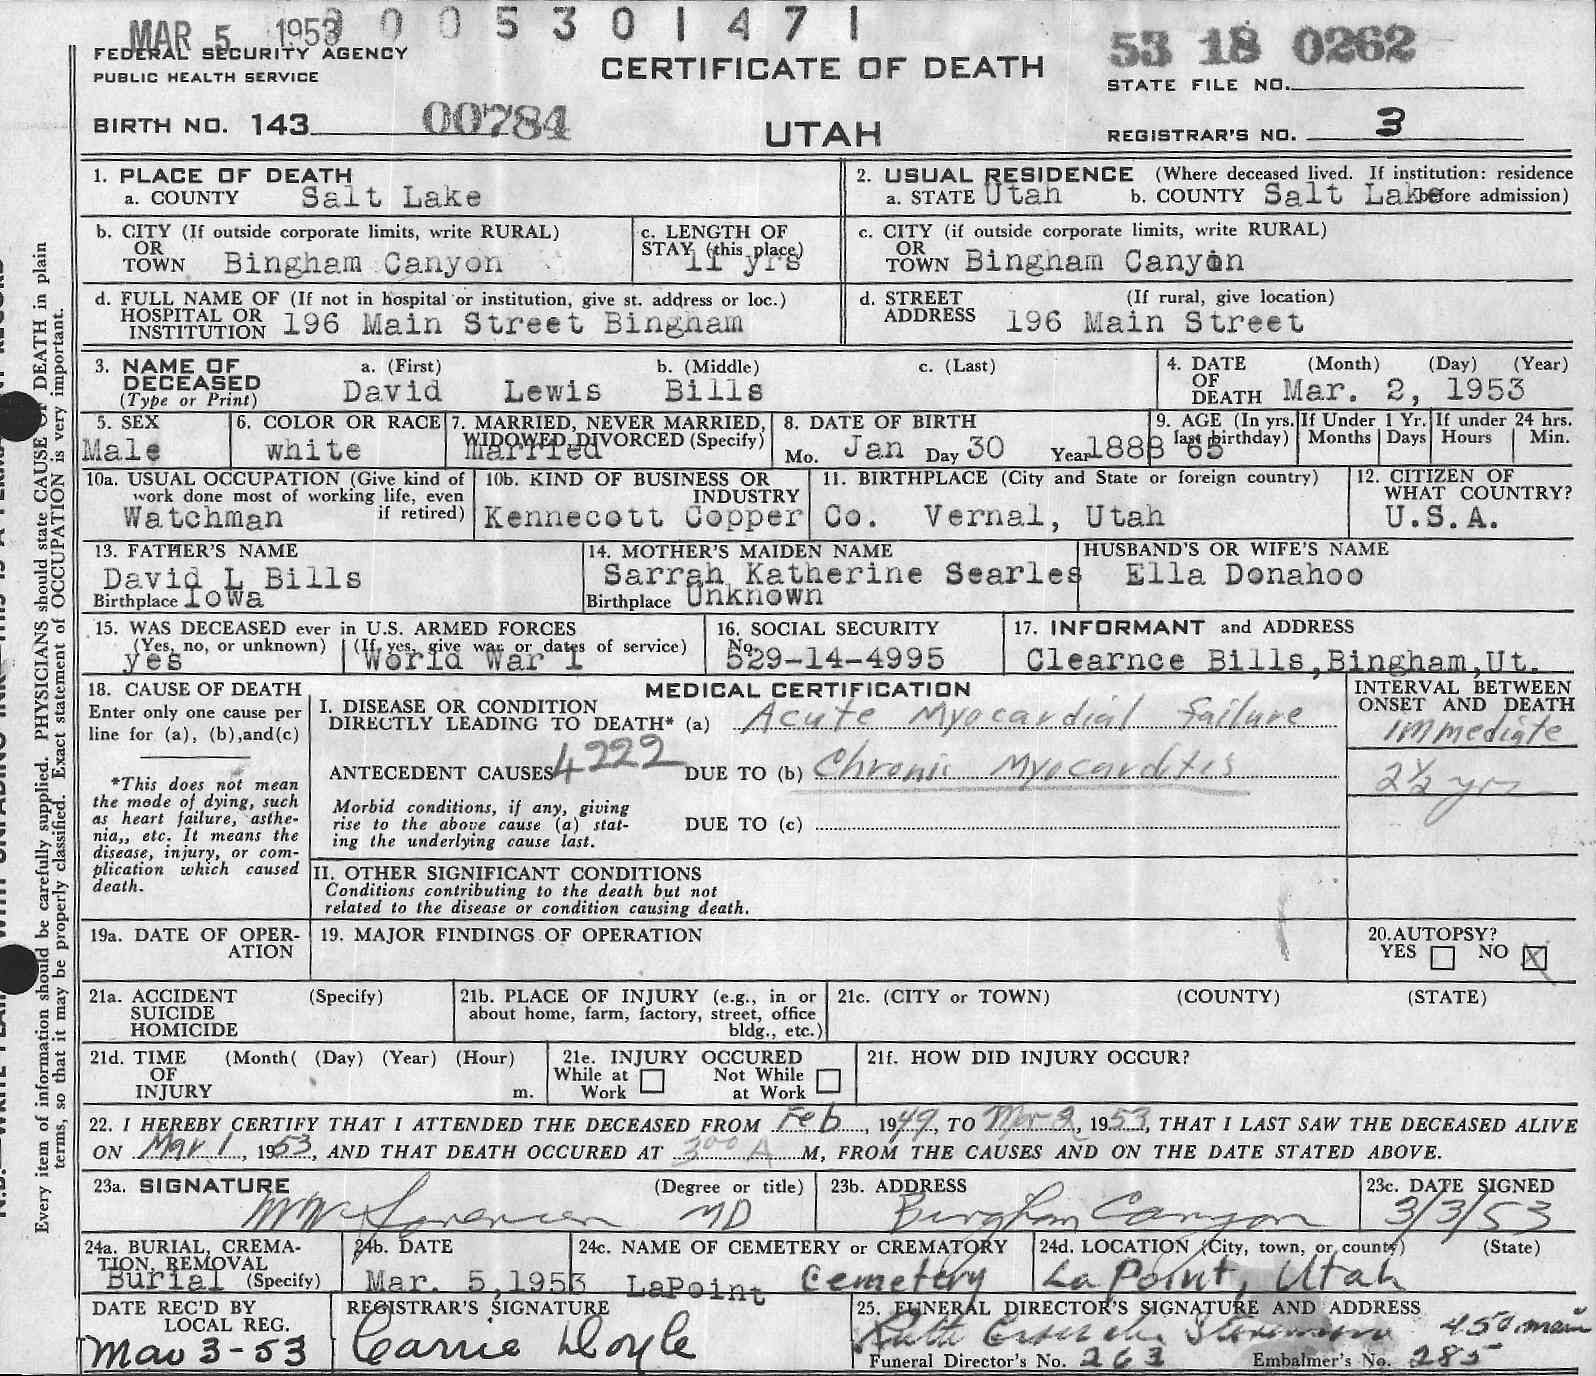 MAR 5 1953 0 0 5 3 0 1 4 7 1
53 18 0262
FEDERAL SECURITY AGENCY
PUBLIC HEALTH SERVICE
CERTIFICATE OF DEATH
STATE FILE NO.
BIRTH NO. 143 00784
UTAH
REGISTRAR'S NO. 3
1. PLACE OF DEATH
a. COUNTY Salt Lake
2. USUAL RESIDENCE (Where deceased lived. If institution: residence
a. STATE Utah b. COUNTY Salt Lake before admission)
b. CITY (If outside corporate limits, write RURAL)
OR
TOWN Bingham Canyon
c. LENGTH OF
STAY (this place)
11 yrs
c. CITY (if outside corporate limits, write RURAL)
OR
TOWN Bingham Canyon
d. FULL NAME OF (If not in hospital or institution, give st. address or loc.)
HOSPITAL OR
INSTITUTION 196 Main Street Bingham
d. STREET (If rural, give location)
ADDRESS 196 Main Street
3. NAME OF a. (First) b. (Middle) c. (Last)
DECEASED David Lewis Bills
(Type or Print)
4. DATE (Month) (Day) (Year)
OF
DEATH Mar. 2, 1953
5. SEX
Male
6. COLOR OR RACE
white
7. MARRIED, NEVER MARRIED,
WIDOWED, DIVORCED (Specify)
Married
8. DATE OF BIRTH
Mo. Jan Day 30 Year 1888
9. AGE (In yrs.
last birthday)
65
If Under 1 Yr.
Months Days
If under 24 hrs.
Hours Min.
10a. USUAL OCCUPATION (Give kind of
work done most of working life, even
if retired)
Watchman
10b. KIND OF BUSINESS OR
INDUSTRY
Kennecott Copper Co.
11. BIRTHPLACE (City and State or foreign country)
Vernal, Utah
12. CITIZEN OF
WHAT COUNTRY?
U.S.A.
13. FATHER'S NAME
David L Bills
Birthplace Iowa
14. MOTHER'S MAIDEN NAME
Sarrah Katherine Searles
Birthplace Unknown
HUSBAND'S OR WIFE'S NAME
Ella Donahoo
15. WAS DECEASED ever in U.S. ARMED FORCES
(Yes, no, or unknown) (If yes, give war or dates of service)
yes World War 1
16. SOCIAL SECURITY
No.
529-14-4995
17. INFORMANT and ADDRESS
Clearnce Bills,Bingham,Ut.
18. CAUSE OF DEATH
Enter only one cause per
line for (a), (b),and(c)
*This does not mean
the mode of dying, such
as heart failure, asthe-
nia,, etc. It means the
disease, injury, or com-
plication which caused
death.
MEDICAL CERTIFICATION
I. DISEASE OR CONDITION
DIRECTLY LEADING TO DEATH* (a) Acute Myocardial failure
ANTECEDENT CAUSES 4222 DUE TO (b) Chronic Myocarditis
Morbid conditions, if any, giving
rise to the above cause (a) stat-
ing the underlying cause last.
DUE TO (c)
INTERVAL BETWEEN
ONSET AND DEATH
Immediate
2½ yrs
II. OTHER SIGNIFICANT CONDITIONS
Conditions contributing to the death but not
related to the disease or condition causing death.
19a. DATE OF OPER-
ATION
19. MAJOR FINDINGS OF OPERATION
20.AUTOPSY?
YES NO X
21a. ACCIDENT (Specify)
SUICIDE
HOMICIDE
21b. PLACE OF INJURY (e.g., in or
about home, farm, factory, street, office
bldg., etc.)
21c. (CITY or TOWN) (COUNTY) (STATE)
21d. TIME (Month( (Day) (Year) (Hour)
OF
INJURY m.
21e. INJURY OCCURED
While at Not While
Work at Work
21f. HOW DID INJURY OCCUR?
22. I HEREBY CERTIFY THAT I ATTENDED THE DECEASED FROM Feb, 1949, TO Mar 2, 1953, THAT I LAST SAW THE DECEASED ALIVE
ON Mar 1, 1953, AND THAT DEATH OCCURED AT 300 A M, FROM THE CAUSES AND ON THE DATE STATED ABOVE.
23a. SIGNATURE (Degree or title)
Sorensen MD
23b. ADDRESS
Bingham Canyon
23c. DATE SIGNED
3/3/53
24a. BURIAL, CREMA-
TION, REMOVAL
Burial (Specify)
24b. DATE
Mar. 5,1953
24c. NAME OF CEMETERY or CREMATORY
LaPoint Cemetery
24d. LOCATION (City, town, or county) (State)
La Point, Utah
DATE REC'D BY
LOCAL REG.
Mar 3-53
REGISTRAR'S SIGNATURE
Carrie Doyle
25. FUNERAL DIRECTOR'S SIGNATURE AND ADDRESS
Ruth 450 main
Funeral Director's No. 263 Embalmer's No. 285
Every item of information should be carefully supplied. PHYSICIANS should state CAUSE OF DEATH in plain
terms, so that it may be properly classified. Exact statement of OCCUPATION is very important.